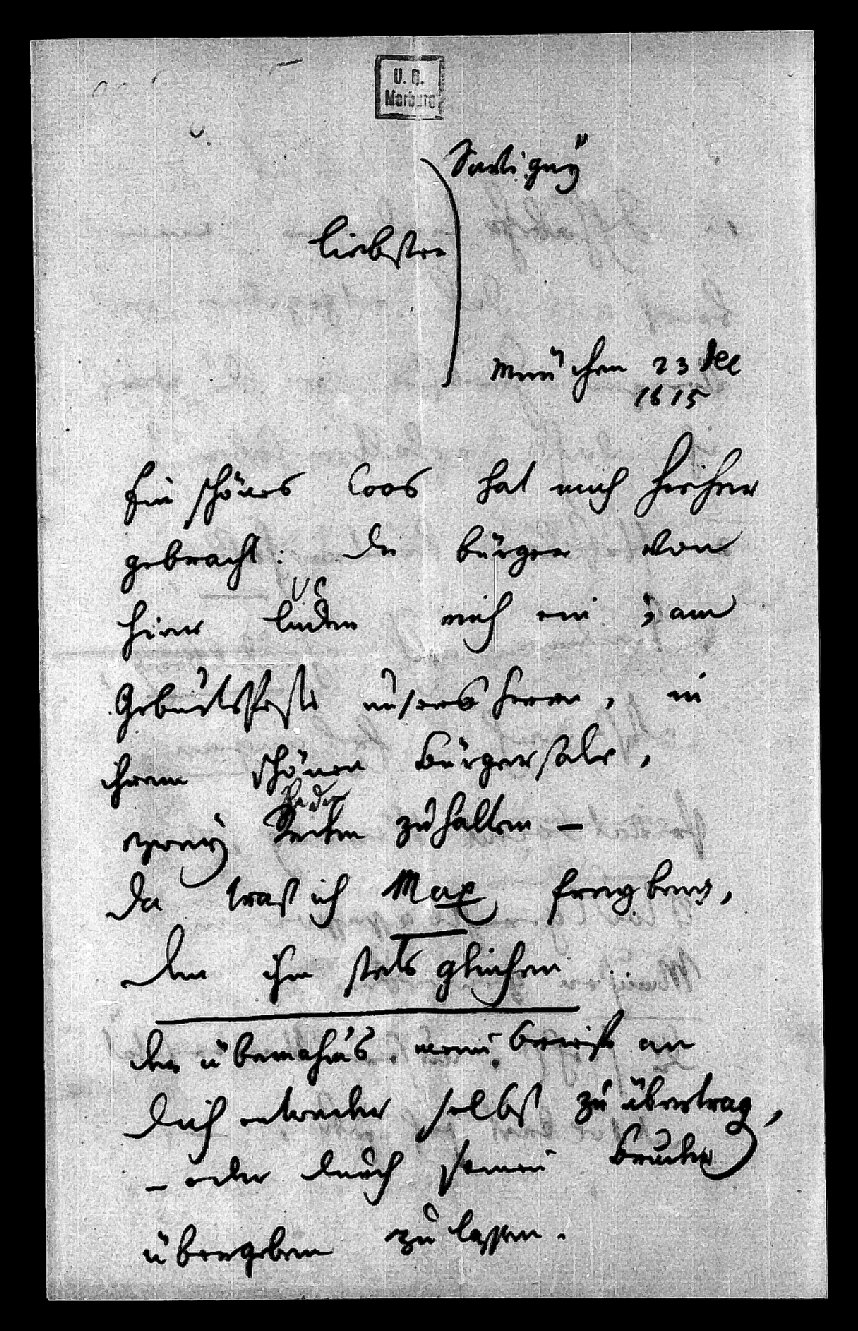 U. B.
Marburg
Savigny
liebster
München 23 Dec
1815
Ein schönes Loos hat mich hierher
gebracht: die bürger von
hier luden mich ein, am
Geburtsfeste unsers Herrn, in
ihrem schönen Bürgersale,
zwey Reden zu halten –
da traf ich Max Freyberg,
den ihm stets gleichen
der übernahms. meine briefe an
Dich entweder selbst zu übertrag,
– oder durch seinen Bruder
übergeben zu lassen.